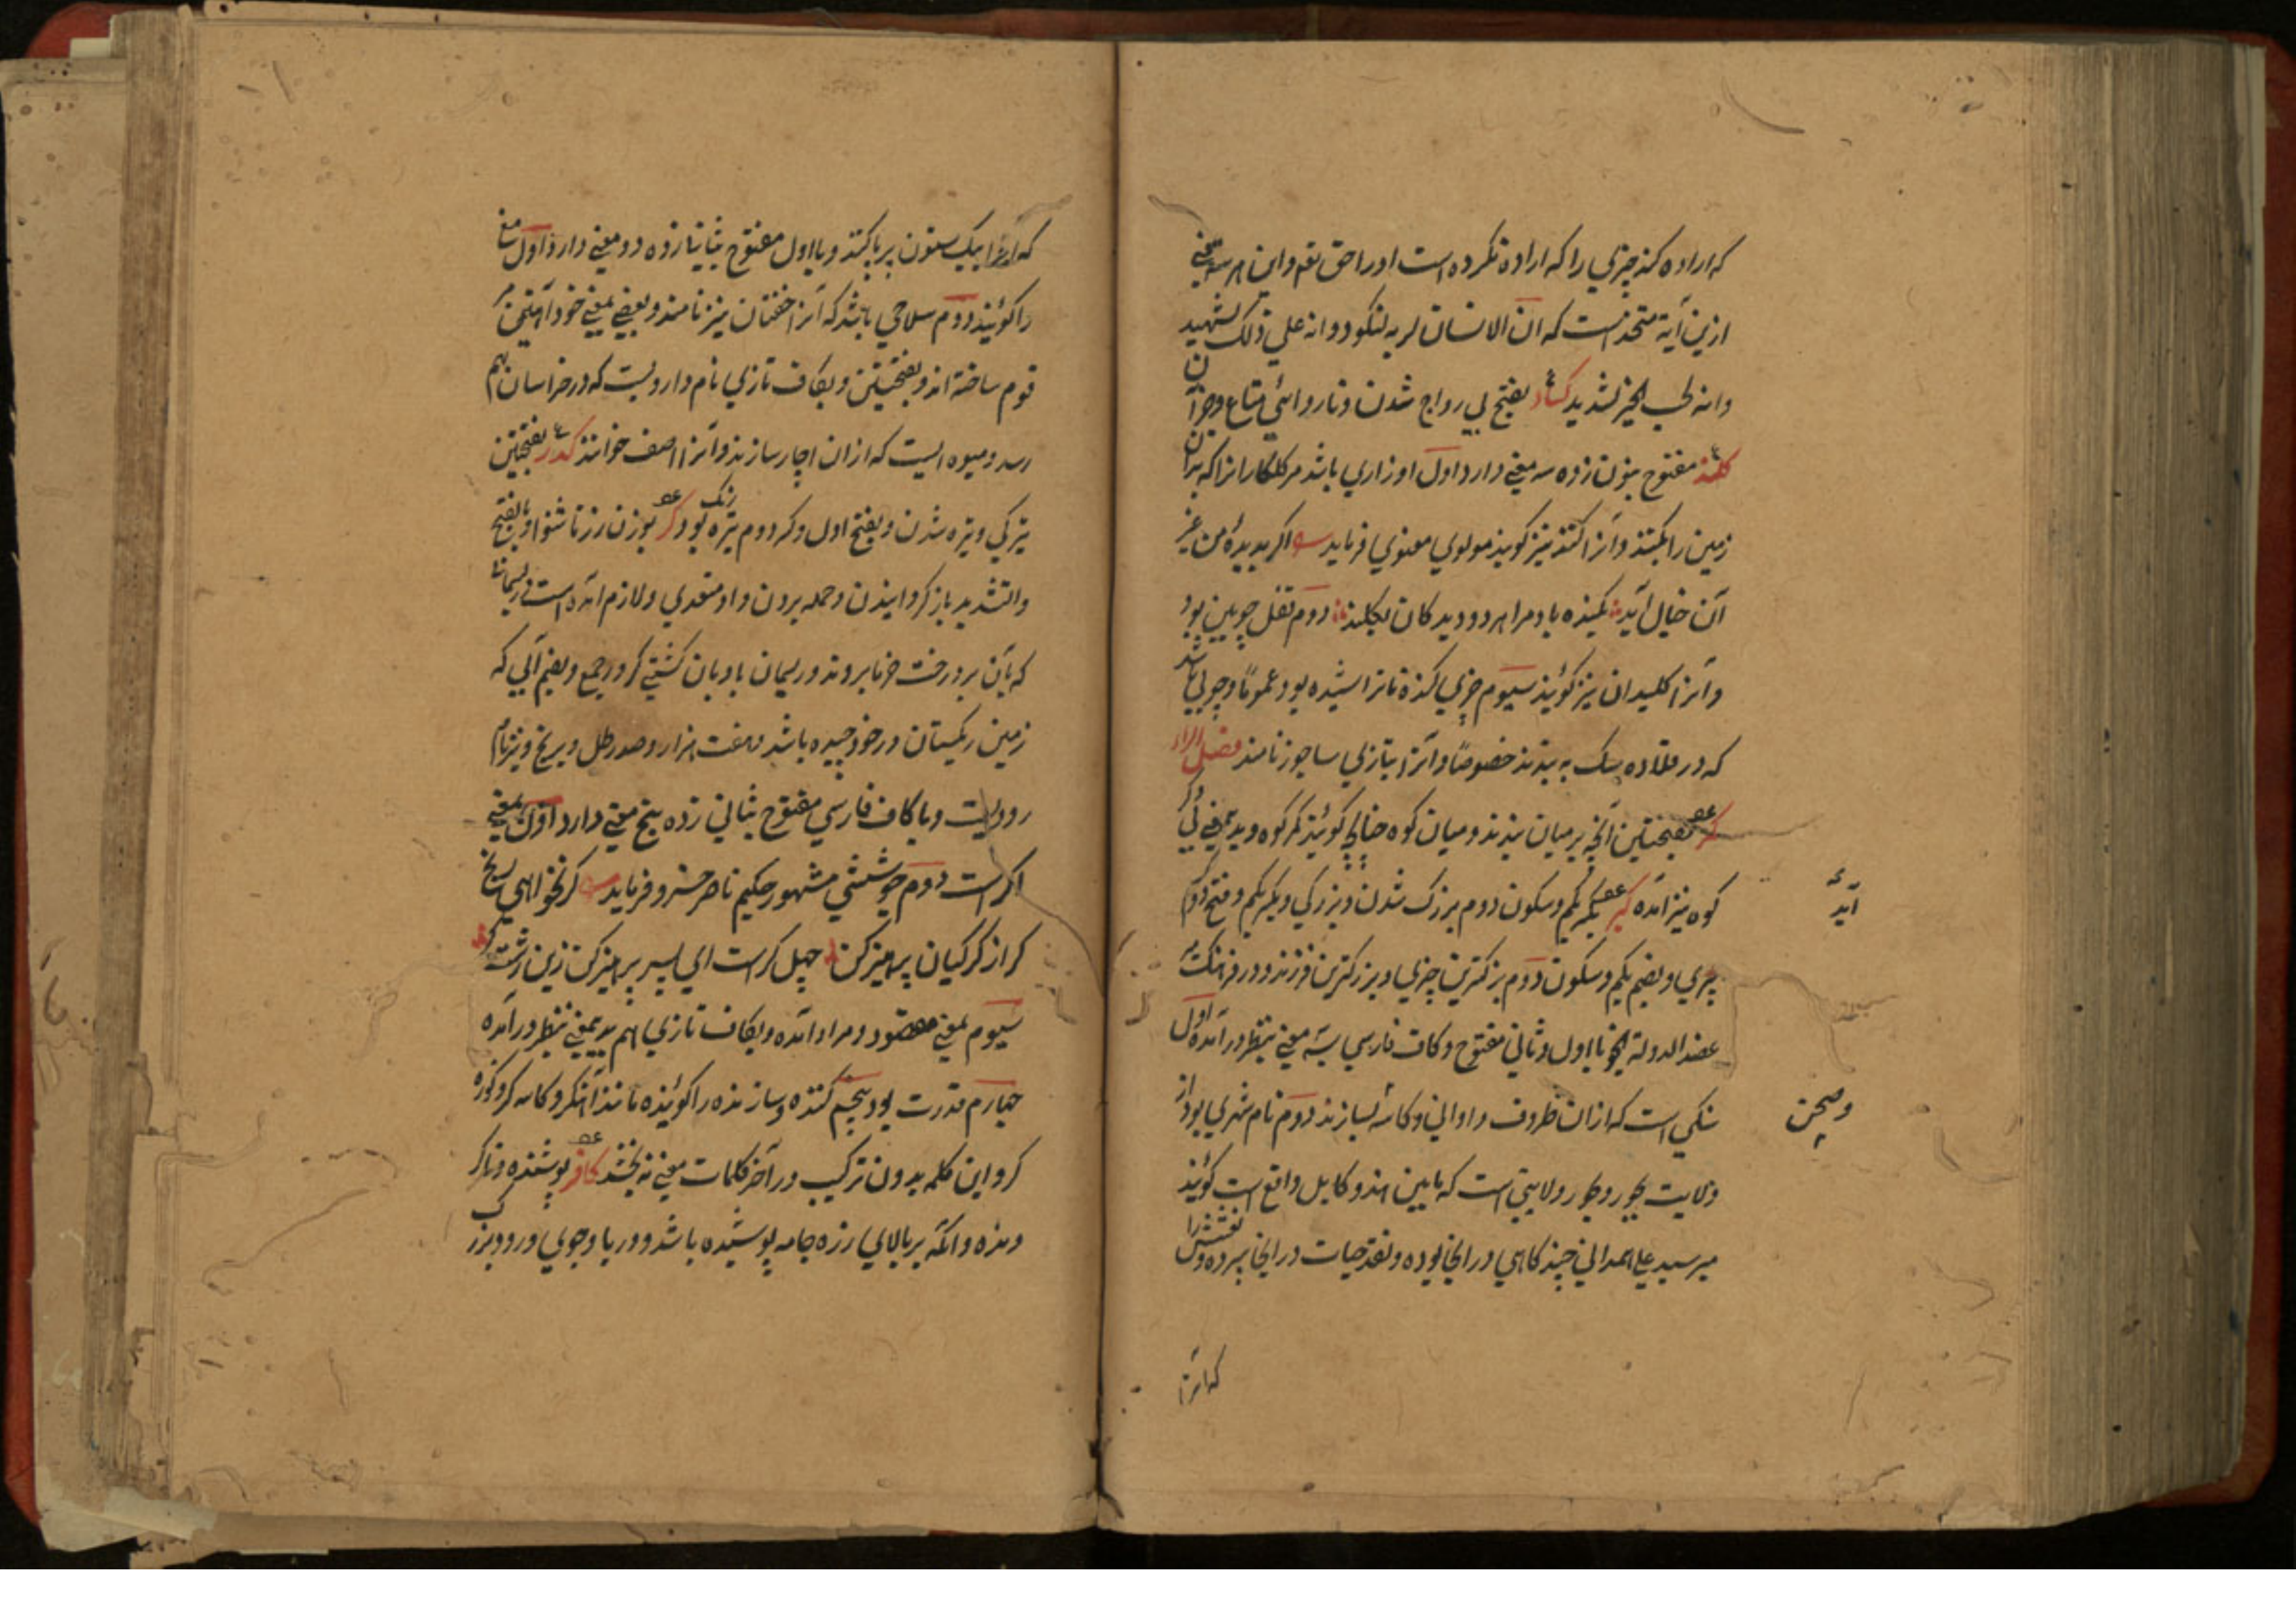 که اراده کند چیزی را که اراده نکرده است او را حق تعم و این هر سه معنی
ازین آیة متحد است که ان الانسان لربه لکنود و انه علی ذلک لشهید
وانه لحب الخیر لشدید کساد بفتح بی رواج شدن و ناروائی متاع و جز آن
کلند مفتوح بنون زده سه معنی دارد اول اوزاری باشد مر کلکارانرا که بدان
زمین را بکنند و آنرا کنند نیز کویند مولوی معنوی فرماید اکر بدیده من غیر
آن خیال آید کنده باد مرا هر دو دیدکان بکلند دوم قفل چوبین بود
و آنرا کلیدان نیز کویند سیوم چیزی کنده ناتراشیده بود عموماً و چوبی باشد
که در قلاده سک به بندند خصوصاً و آنرا بتازی ساجور نامند فصل الراء
کمر بفتحتین آنچه بر میان بندند و میان کوه چنانچه کویند کمر کوه و بمعنی
کوه نیز آمده کبر بکسر یکم و سکون دوم بزرک شدن و بزرکی و بکسر یکم و فتح دوم
پیری و بضم یکم و سکون دوم بزرکترین چیزی و بزرکترین فرزند و در فرهنک
عضد الدولة انجو با اول و ثانی مفتوح و کاف فارسی بسه معنی بنظر در آمده اول
سنکی است که ازان ظروف و اوانی و کاسه بسازند دوم نام شهری بود از
ولایت و ولایتی است که مابین هند و کابل واقع است کویند
میر سید علی همدانی چند کاهی در انجا بوده و نقد حیات در انجا سپرده و نعشش را
آید
وصحن
که انرا
که آنرا بیک ستون برپا کنند و با اول مفتوح بثانی زده دو معنی دارد اول مغ
را کویند دوم سلاحی باشد که آنرا خفتان نیز نامند و بعضی بمعنی خود آهنین
قوم ساخته اند و بفتحتین و بکاف تازی نام داروییست که در خراسان بهم
رسد و میوه ایست که ازان اچار سازند و آنرا اصف خوانند کدر بفتحتین
تیرکی و تیره شدن و بفتح اول و کسر دوم تیره رنک بود کر بوزن زر ناشنوا و بالفتح
والتشدید باز کردانیدن و حمله بردن و او متعدی و لازم آمده است و ریسمانی
که بآن بر درخت خرما بروند و ریسمان بادبان کشتی کرور جمع و بضم آبی که
زمین ریکستان در خود چیده باشد و هفت هزار و صد رطل و برنج و نیز نام
رودیست و با کاف فارسی مفتوح بثانی زده پنج معنی دارد اول بمعنی
اکر است دوم جوششی مشهور حکیم ناصر خسرو فرماید کر نخواهی رنج
کر از کرکیان پرهیز کن جهل کر است ای پسر پرهیز کن زین زشت کر
سیوم بمعنی مقصود و مراد آمده و بکاف تازی هم بدین معنی بنظر در آمده
چهارم قدرت بود پنجم کننده و سازنده را کویند مانند آهنکر و کاسه کر و کوزه
کر و این کلمه بدون ترکیب در آخر کلمات معنی نه بخشد کافر پوشنده و ناکر
ونده و آنکه بر بالای زره جامه پوشیده باشد و دریا و جوی و رود بزرک